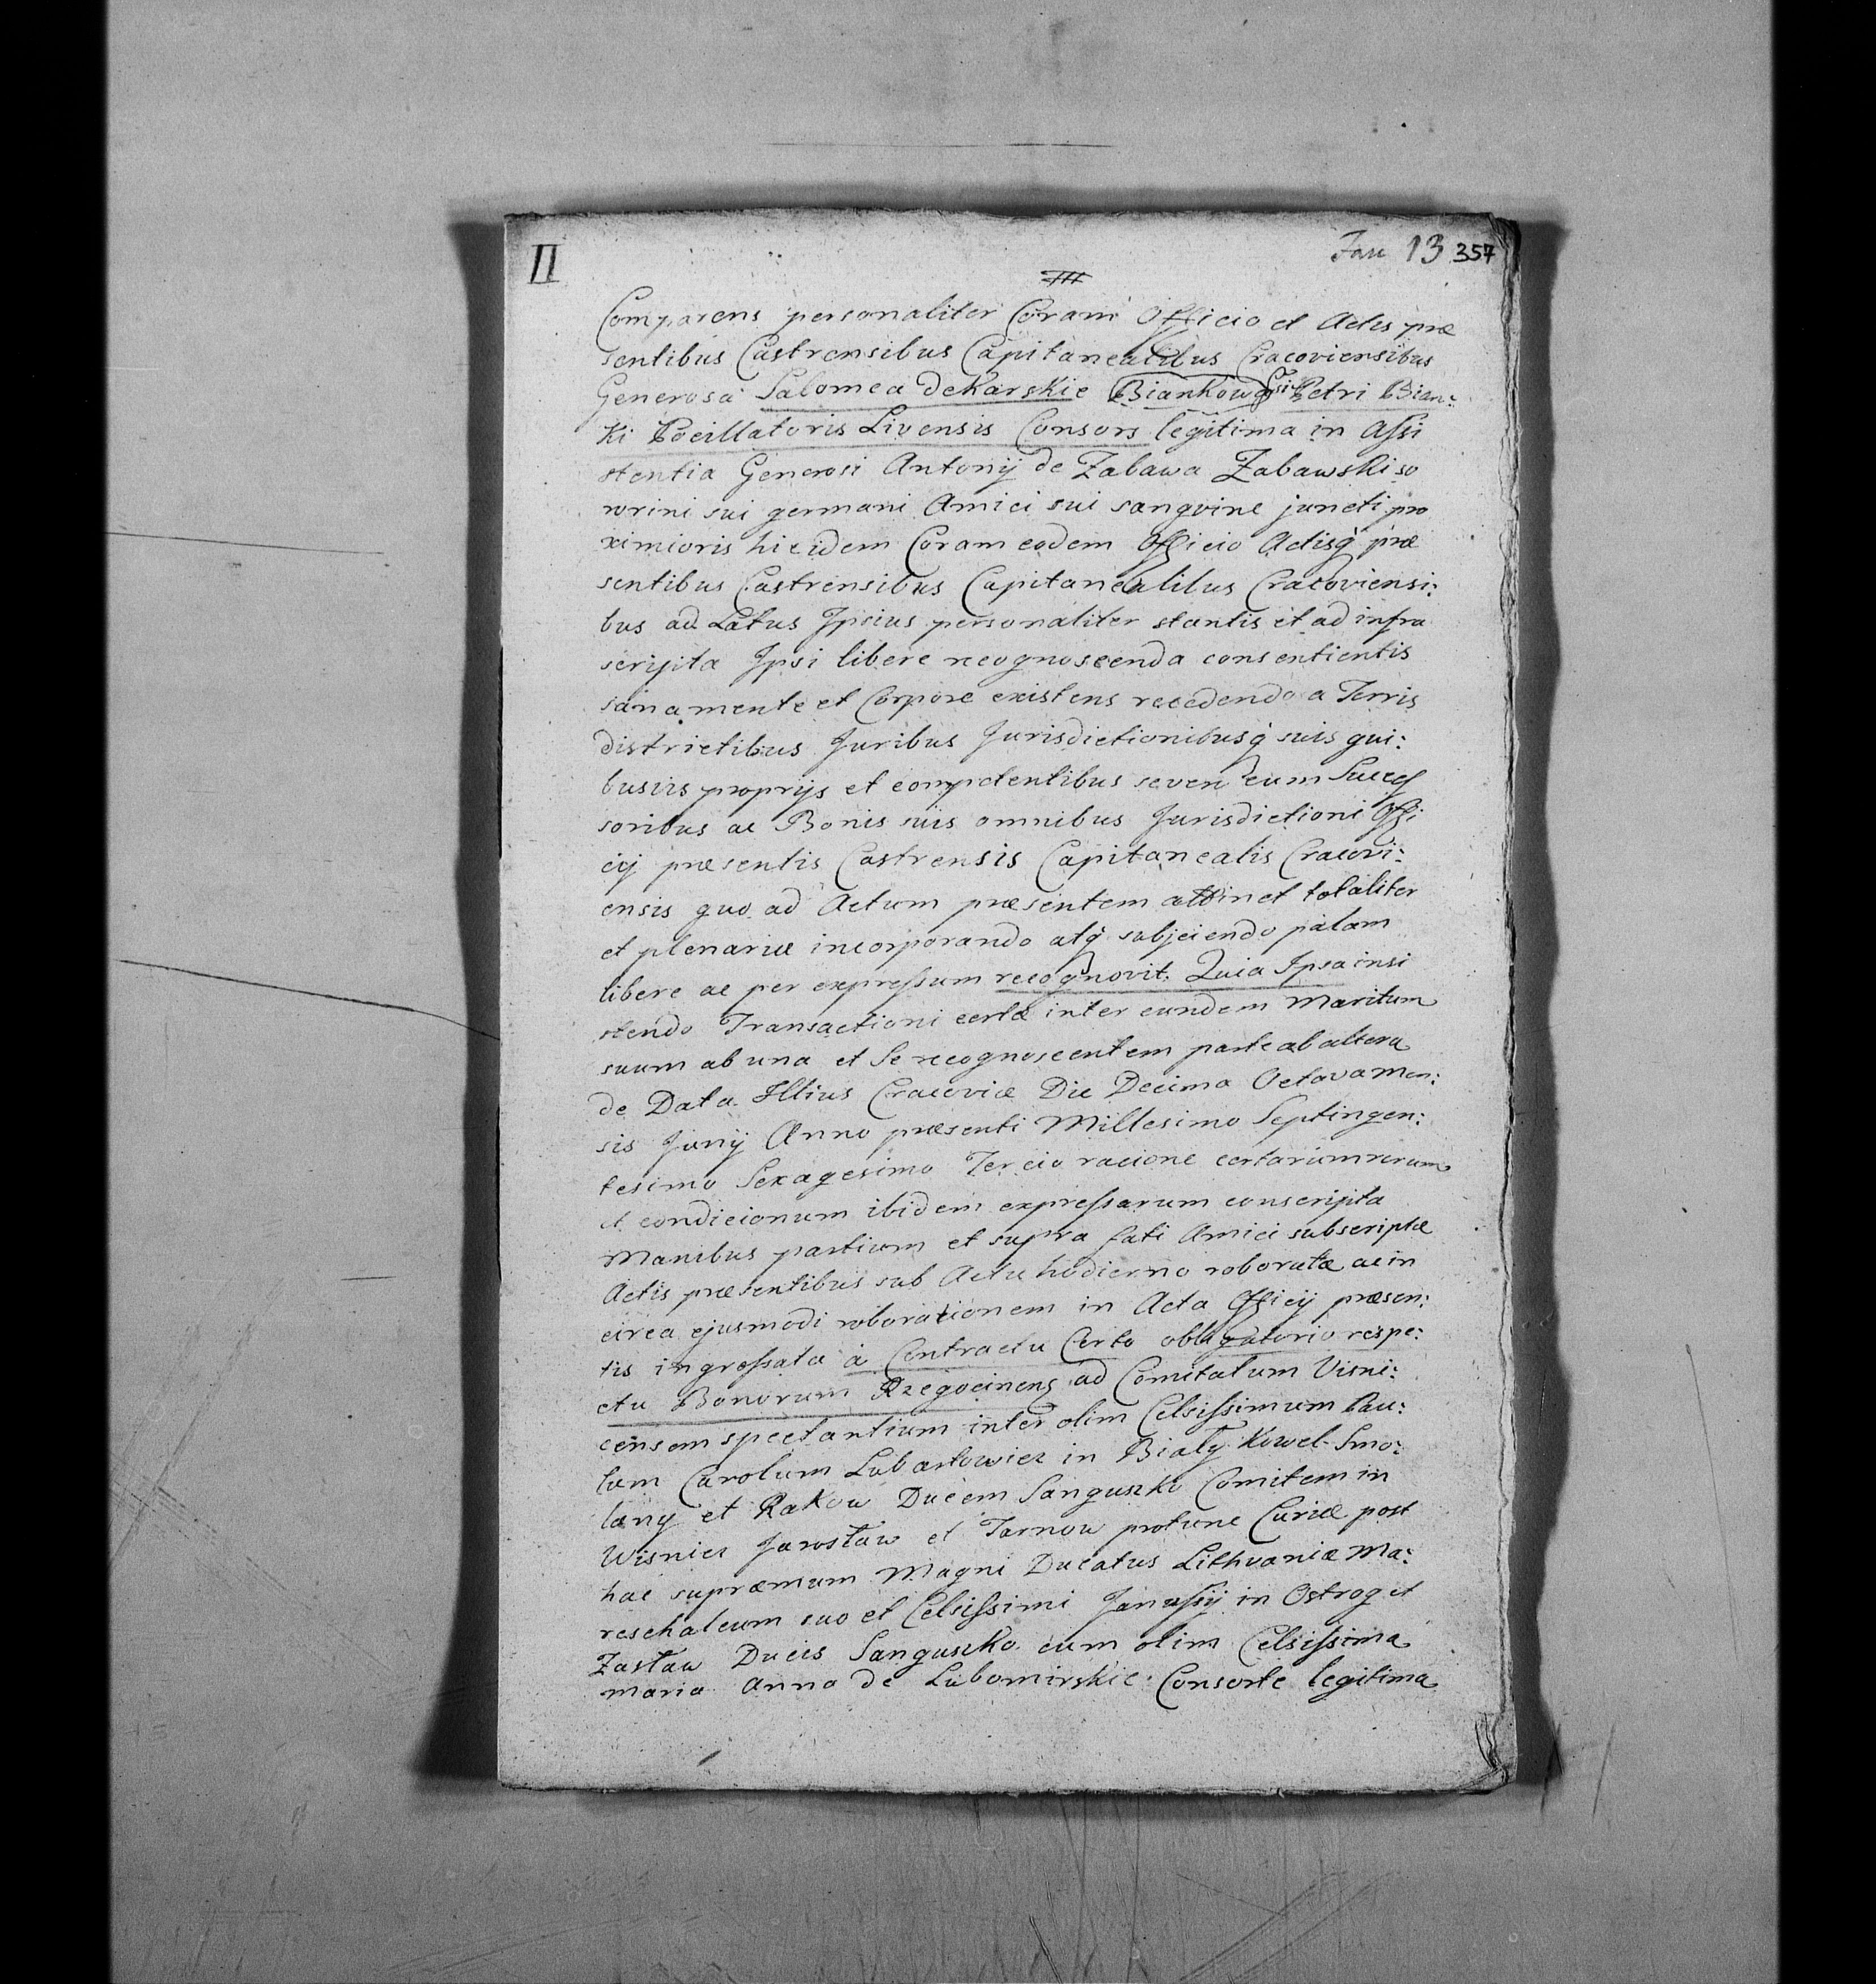 II
Jan 13 357
Comparens personaliter Coram Officio et Actis præ
sentibus Castrensibus Capitanealibus Cracoviensibus
Generosa Salomea de Karskie Biankowa Gsi Petri Bian:
ki Pocillatoris Livensis Consors legitima in Assi
stentia Generosi Antonij de Zabawa Zabawski so
rorini sui germani Amici sui sangvine juncti pro
ximioris hicidem Coram eodem Officio Actisq́ præ
sentibus Castrensibus Capitanealibus Cracoviensi:
bus ad Latus Ipsius personaliter stantis et ad infra
scripta Ipsi libere recognoscenda consentientis
sana mente et Corpore existens recedendo a Terris
districtibus Juribus Jurisdictionibusq́ suis qui:
busvis proprijs et competentibus seven cum Succes
soribus ac Bonis suis omnibus Jurisdictioni Offi
cij præsentis Castrensis Capitanealis Cracovi:
ensis quo ad Actum præsentem attinet totaliter
et plenarie incorporando atq́ subjiciendo palam
libere ac per expressum recognovit. Quia Ipsa insi
stendo Transactioni certæ inter eundem Maritum
suum ab una et Se recognoscentem parte ab altera
de Data Illius Cracoviæ Die Decima Octava Men:
sis Junij Anno præsenti Millesimo Septingen:
tesimo Sexagesimo Tercio racione certarum rerum
et condicionum ibidem expressarum conscripta
Manibus partium et supra fati Amici subscriptæ
Actis præsentibus sub Actu hodierno roboratæ ac in
circa ejusmodi roborationem in Acta Officij præsen:
tis ingrossata a Contractu Certo obligatorio respe:
ctu Bonorum Rzegocinens ad Comitatum Visni:
censem spectantium inter olim Celsissimum Pau:
lum Carolum Lubartowicz in Biały Kowel Smo:
lany et Rakow Ducem Sanguszko Comitem in
Wisnicz Jarosław et Tarnow protunc Curiæ post
hac supræmum Magni Ducatus Lithvaniæ Ma:
reschalcum suo et Celsissimi Janussij in Ostrog et
Zasław Ducis Sanguszko cum olim Celsissima
Maria Anna de Lubomirskie Consorte legitima